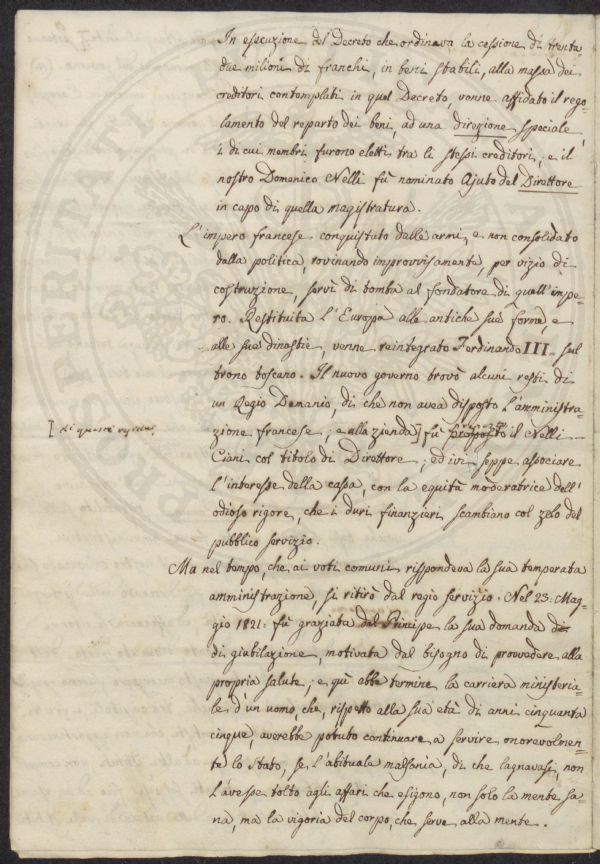 In esecuzione del Decreto che ordinava la cessione di trenta-
due milioni di franchi, in beni stabili, alla massa dei
creditori contemplati in quel Decreto, venne affidato il rego-
lamento del reparto dei beni, ad una direzione speciale,
i di cui membri furono eletti tra li stessi creditori; e il
nostro Domenico Nelli fù nominato Ajuto del Direttore
in capo di quella magistratura.
L'impero francese conquistato dalle armi, e non consolidato
dalla politica, rovinando improvvisamente, per vizio di
costruzione, servì di tomba al fondatore di quell'impe-
ro. Restituita l'Europa alle antiche sue forme, e
alle sue dinastie, venne reintegrato Ferdinando III. sul
trono toscano. Il nuovo governo trovò alcuni resti di
un Regio Demanio, di che non avea disposto l'amministra-
zione francese; e alla zienda] fù preposto il Nelli
[ di questi
Ciani col titolo di Direttore; ed ivi seppe associare
l'interesse della cassa, con la equità moderatrice dell'
odioso rigore, che i duri finanzieri scambiano col zelo del
pubblico servizio.
Ma nel tempo, che ai voti comuni rispondeva la sua temperata
amministrazione, si ritirò dal regio servizio. Nel 25. Mag-
gio 1821. fù graziata dal Principe la sua domanda di
di giubilazione, motivata dal bisogno di provvedere alla
propria salute; e quì ebbe termine la carriera ministeria-
le d'un uomo, che, rispetto alla sua età di anni cinquanta
cinque, averebbe potuto continuare a servire onorevolmen-
te lo Stato, se l'abituale malsania, di che lagnavasi, non
l'avesse tolto agli affari che esigono, non solo la mente sa-
na, ma la vigoria del corpo, che serve alla mente.